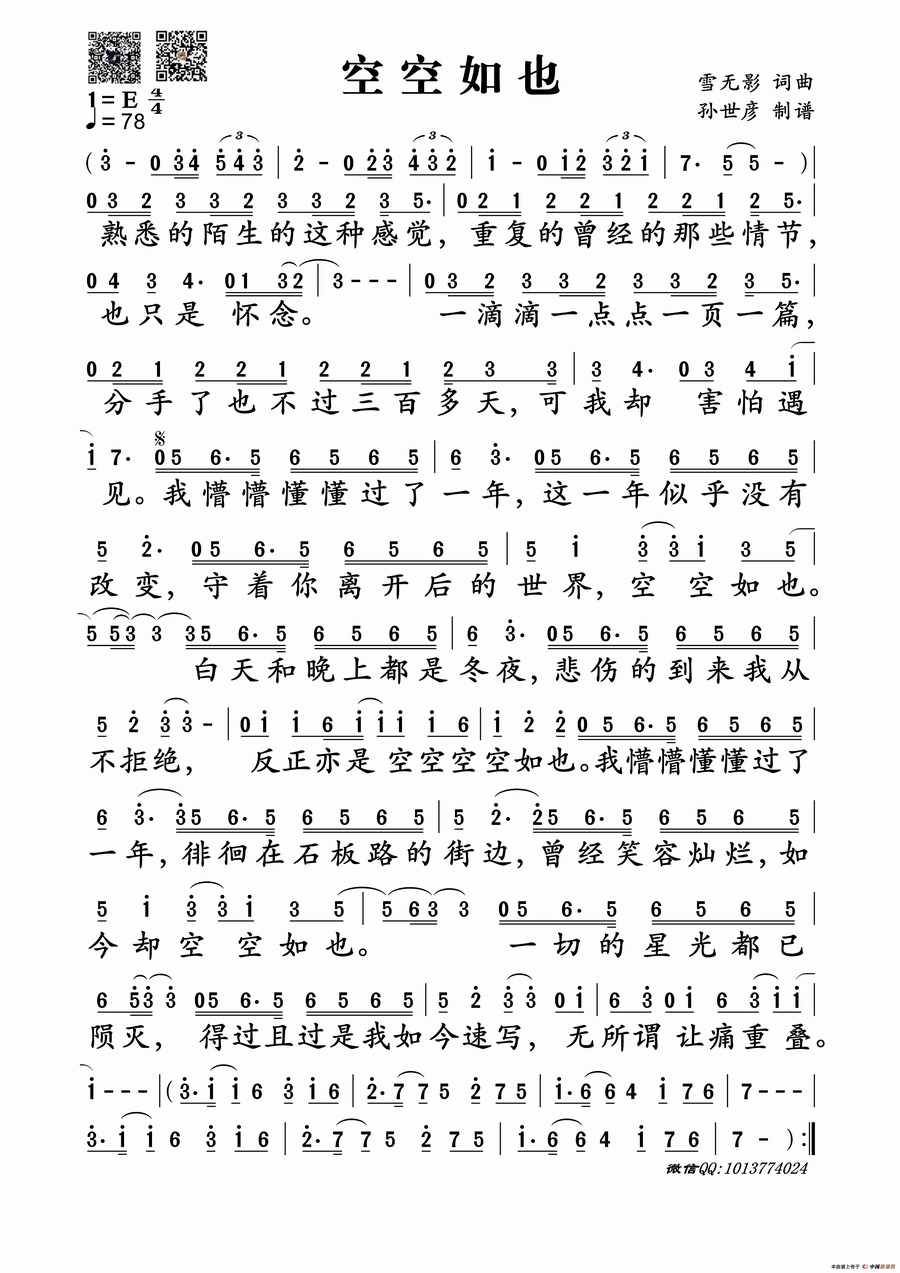 空空如也
1=E 4/4
♩=78
雪无影 词曲
孙世彦 制谱
(3 - 0 34 543 | 2 - 0 23 432 | 1 - 0 12 321 | 7· 5 5 - )|
0 3 2 3 3 2 3 3 2 3 5· | 0 2 1 2 2 1 2 2 1 2 5· |
熟悉的陌生的这种感觉, 重复的曾经的那些情节,
0 4 3 4· 01 32 | 3 - - - | 0 3 2 3 3 2 3 3 2 3 5· |
也只是 怀念。 一滴滴一点点一页一篇,
0 2 1 2 2 1 2 2 1 2 3 3 | 3 4· 0 3 4 1 |
分手了也不过三百多天, 可我却 害怕遇
1 7· 05 6· 5 6 5 6 5 | 6 3· 05 6· 5 6 5 6 5 |
见。我懵懵懂懂过了一年, 这一年似乎没有
5 2· 05 6· 5 6 5 6 5 | 5 1 3 3 1 3 5 |
改变, 守着你离开后的世界, 空 空如也。
5 53 3 35 6· 5 6 5 6 5 | 6 3· 05 6· 5 6 5 6 5 |
白天和晚上都是冬夜, 悲伤的到来我从
5 2 3 3 - | 0 1 1 6 1 1 1 1 6 | 1 2 2 05 6· 5 6 5 6 5 |
不拒绝, 反正亦是空空空空如也。我懵懵懂懂过了
6 3· 35 6· 5 6 5 6 5 | 5 2· 25 6· 5 6 5 6 5 |
一年, 徘徊在石板路的街边, 曾经笑容灿烂, 如
5 1 3 3 1 3 5 | 5 63 3 05 6· 5 6 5 6 5 |
今却空 空如也。 一切的星光都已
6 53 3 05 6· 5 6 5 6 5 | 5 2 3 3 0 1 | 6 3 0 1 6 3 1 1 |
陨灭, 得过且过是我如今速写, 无所谓 让痛重叠。
1 - - - |(3· 1 1 6 3 1 6 | 2· 7 7 5 2 7 5 | 1· 6 6 4 1 7 6 | 7 - - - |
3· 1 1 6 3 1 6 | 2· 7 7 5 2 7 5 | 1· 6 6 4 1 7 6 | 7 - ) :|
微信QQ:1013774024
本曲谱上传于 中国曲谱网